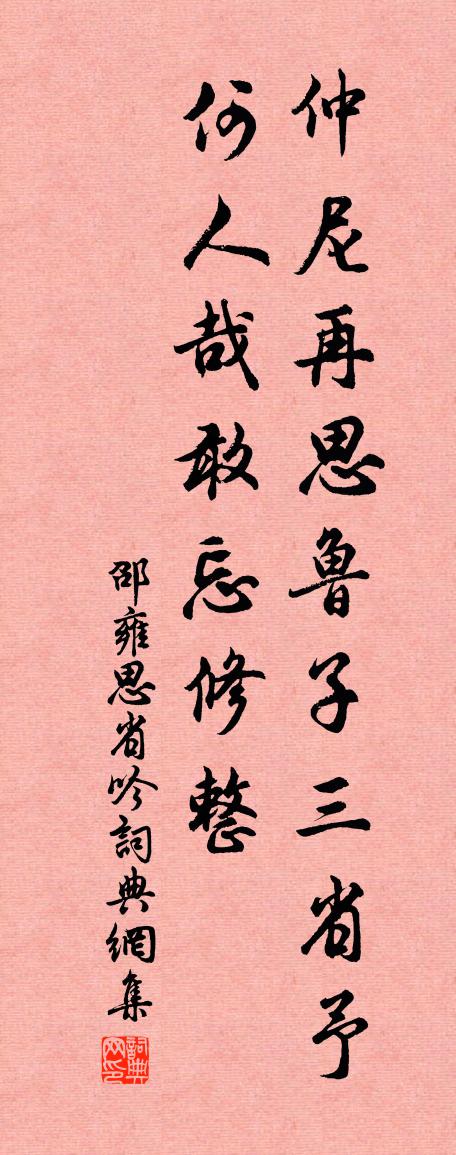 仲尼再思鲁子三省予
何人哉敢忘修整
邵雍思省吟詞典網集
詞典网印